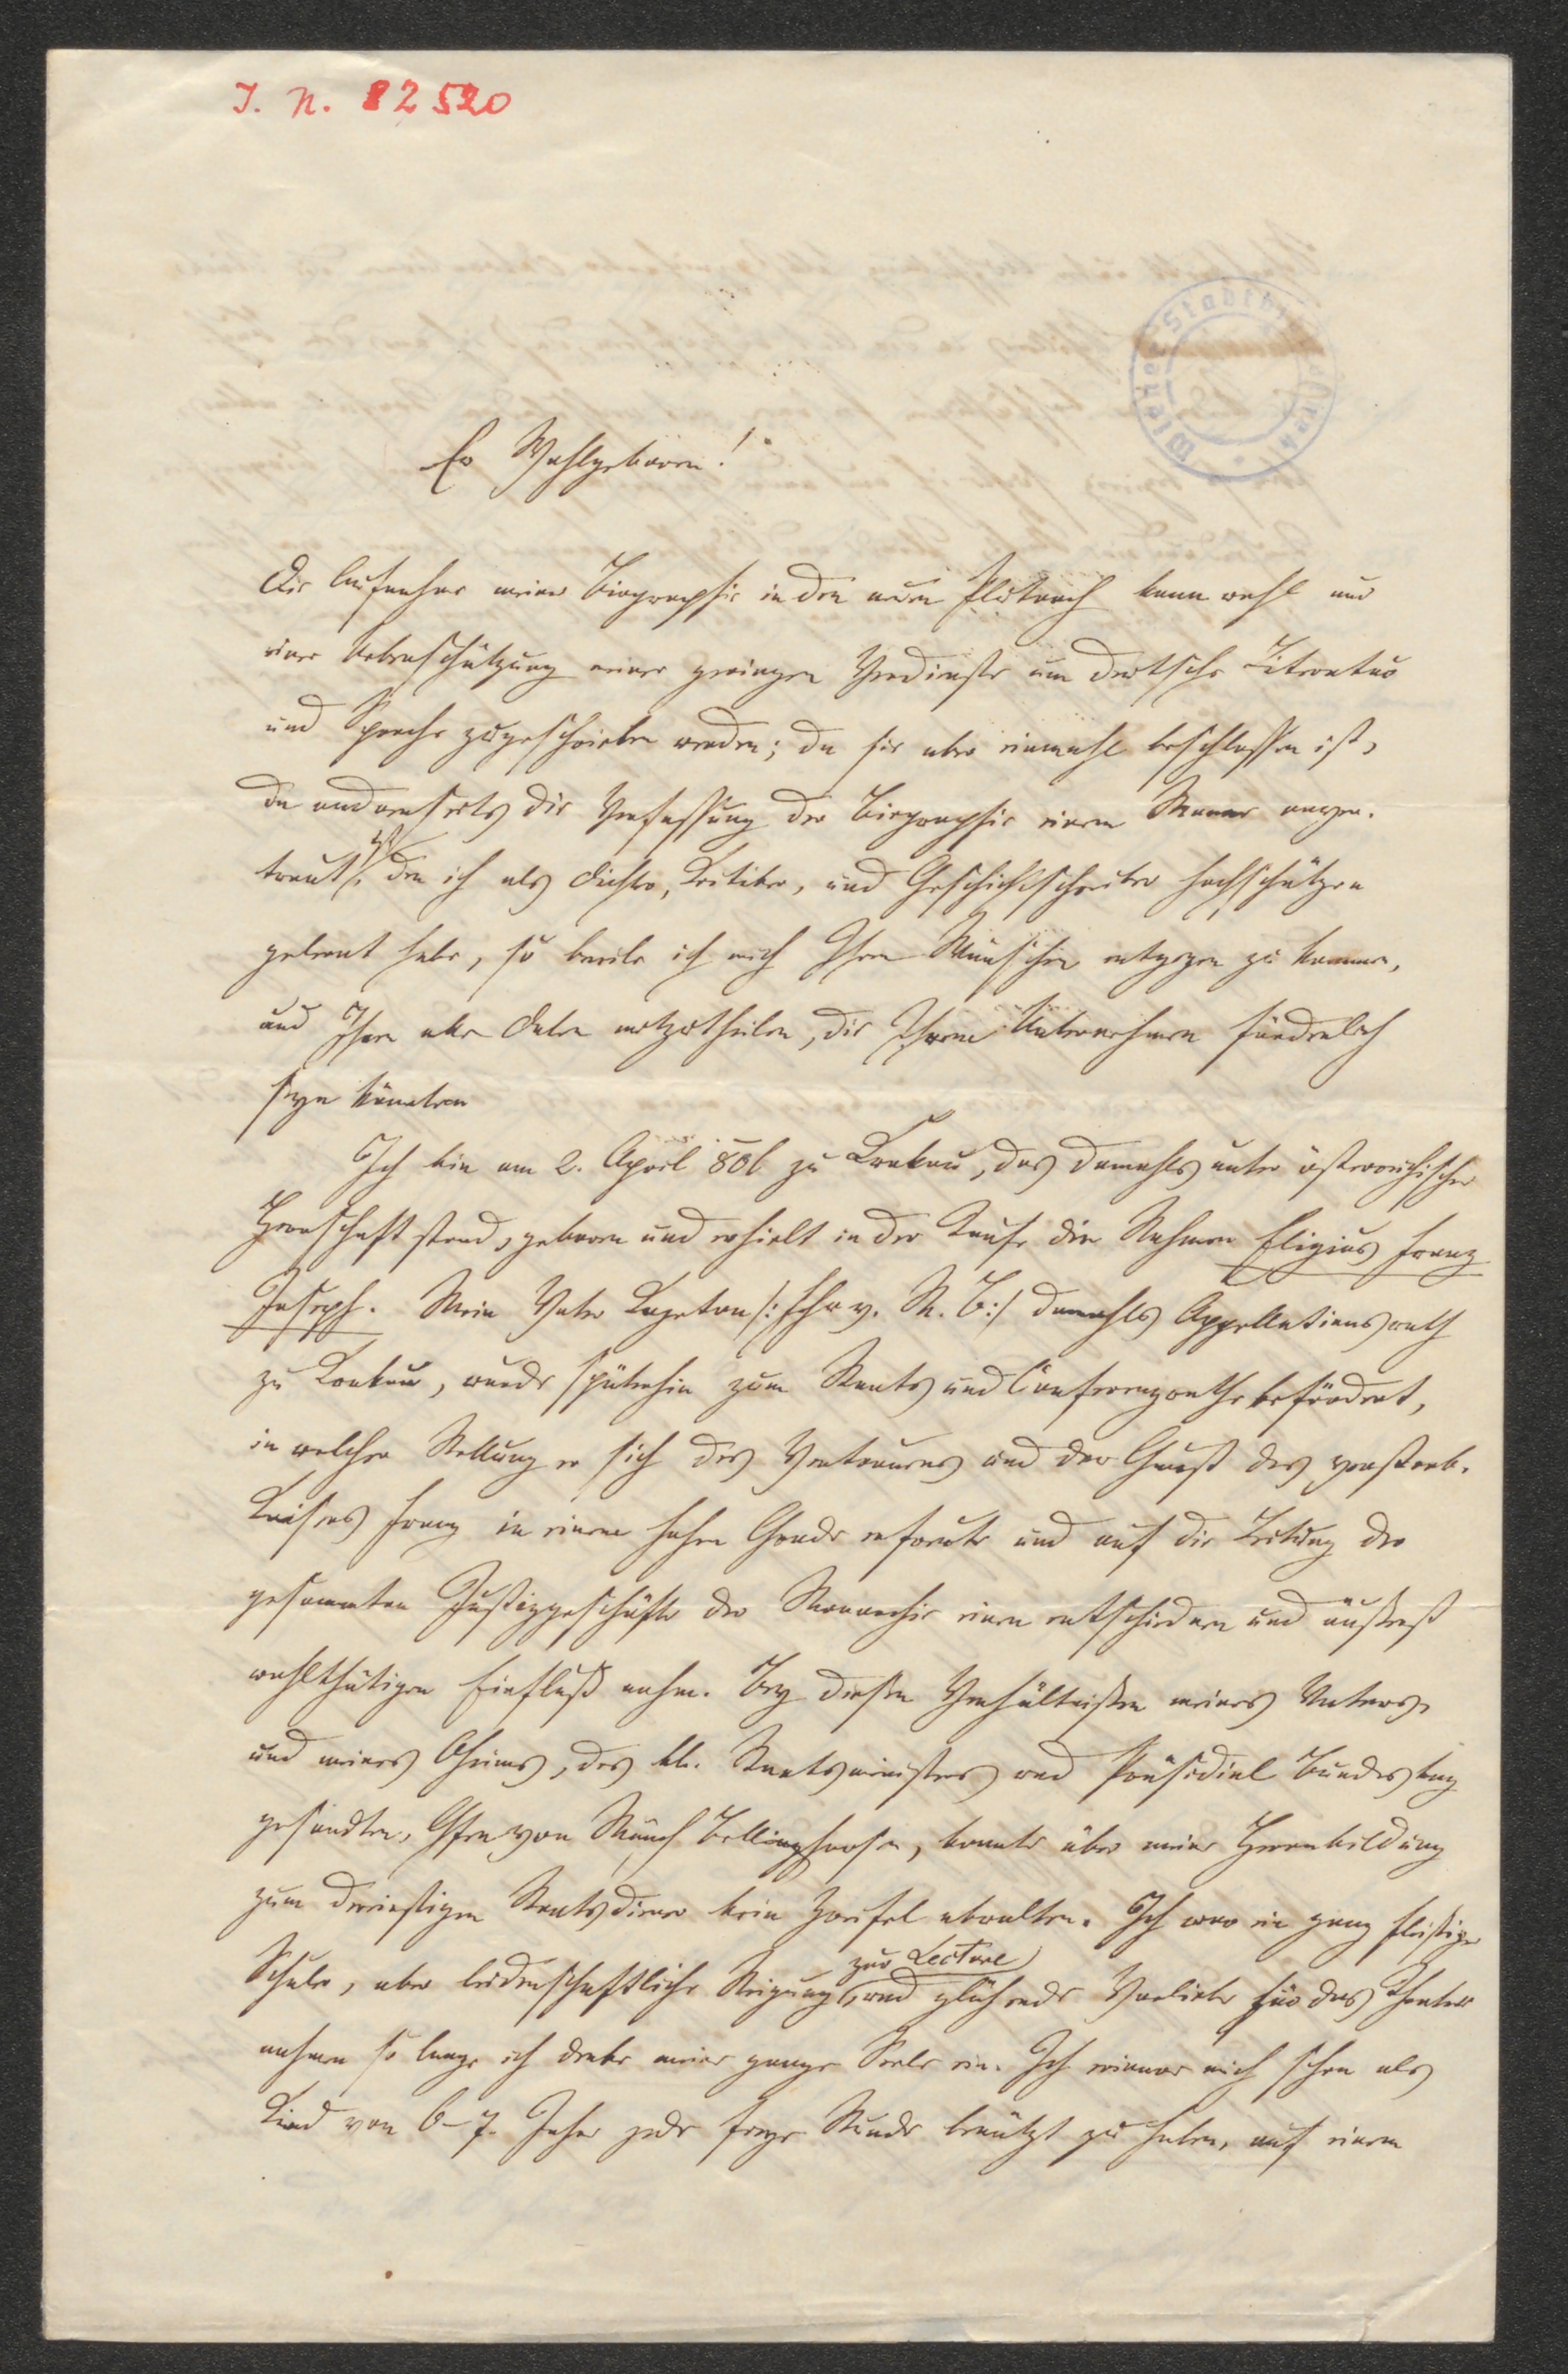 I. N. 82520
Wiener Stadtbibliothek
Ew Wohlgeboren!
Die Aufnahme meiner Biographie in den neuen Plutarch kann wohl nur
einer Ueberschätzung meiner geringen Verdienste um deutsche Literatur
und Sprache zugeschrieben werden; da sie aber einmahl beschlossen ist,
da andrerseits die Verfassung der Biographie einem Manne anver-
traut ist, den ich als Dichter, Kritiker, und Geschichtschreiber hochschätzen
gelernt habe, so beeile ich mich Ihren Wünschen entgegen zu kommen,
und Ihnen alle Daten mitzutheilen, die Ihrem Unternehmen förderlich
seyn könnten
Ich bin am 2. April 806 zu Krakau, das damahls unter österreichischer
Herrschaft stand, geboren und erhielt in der Taufe die Nahmen Eligius Franz
Joseph. Mein Vater Cajetan /: Fhr v. M. B :/ damahls Appellationsrath
zu Krakau, wurde späterhin zum Staats und Conferenzrathe befördert,
in welcher Stellung er sich des Vertrauens und der Gunst des verstorb.
Kaisers Franz in einem hohen Grade erfreute und auf die Leitung der
gesammten Justizgeschäfte der Monarchie einen entschiedenen und äußerst
wohlthätigen Einfluß nahm. Bey diesen Verhältnissen meines Vaters,
und meines Oheims, des kk. Staatsministers und Präsidial Bundestag
gesandten, Gfen von Münch Bellinghausen, konnte über meine Heranbildung
zum dereinstigen Staatsdiener kein Zweifel obwalten. Ich war ein ganz fleißiger
Schüler, aber leidenschaftliche Neigung zur Lecture, und glühende Vorliebe für das Theater
nahmen so lange ich denke meine ganze Seele ein. Ich erinnere mich schon als
Kind von 6-7. Jahre jede freye Stunde benützt zu haben, auf einem